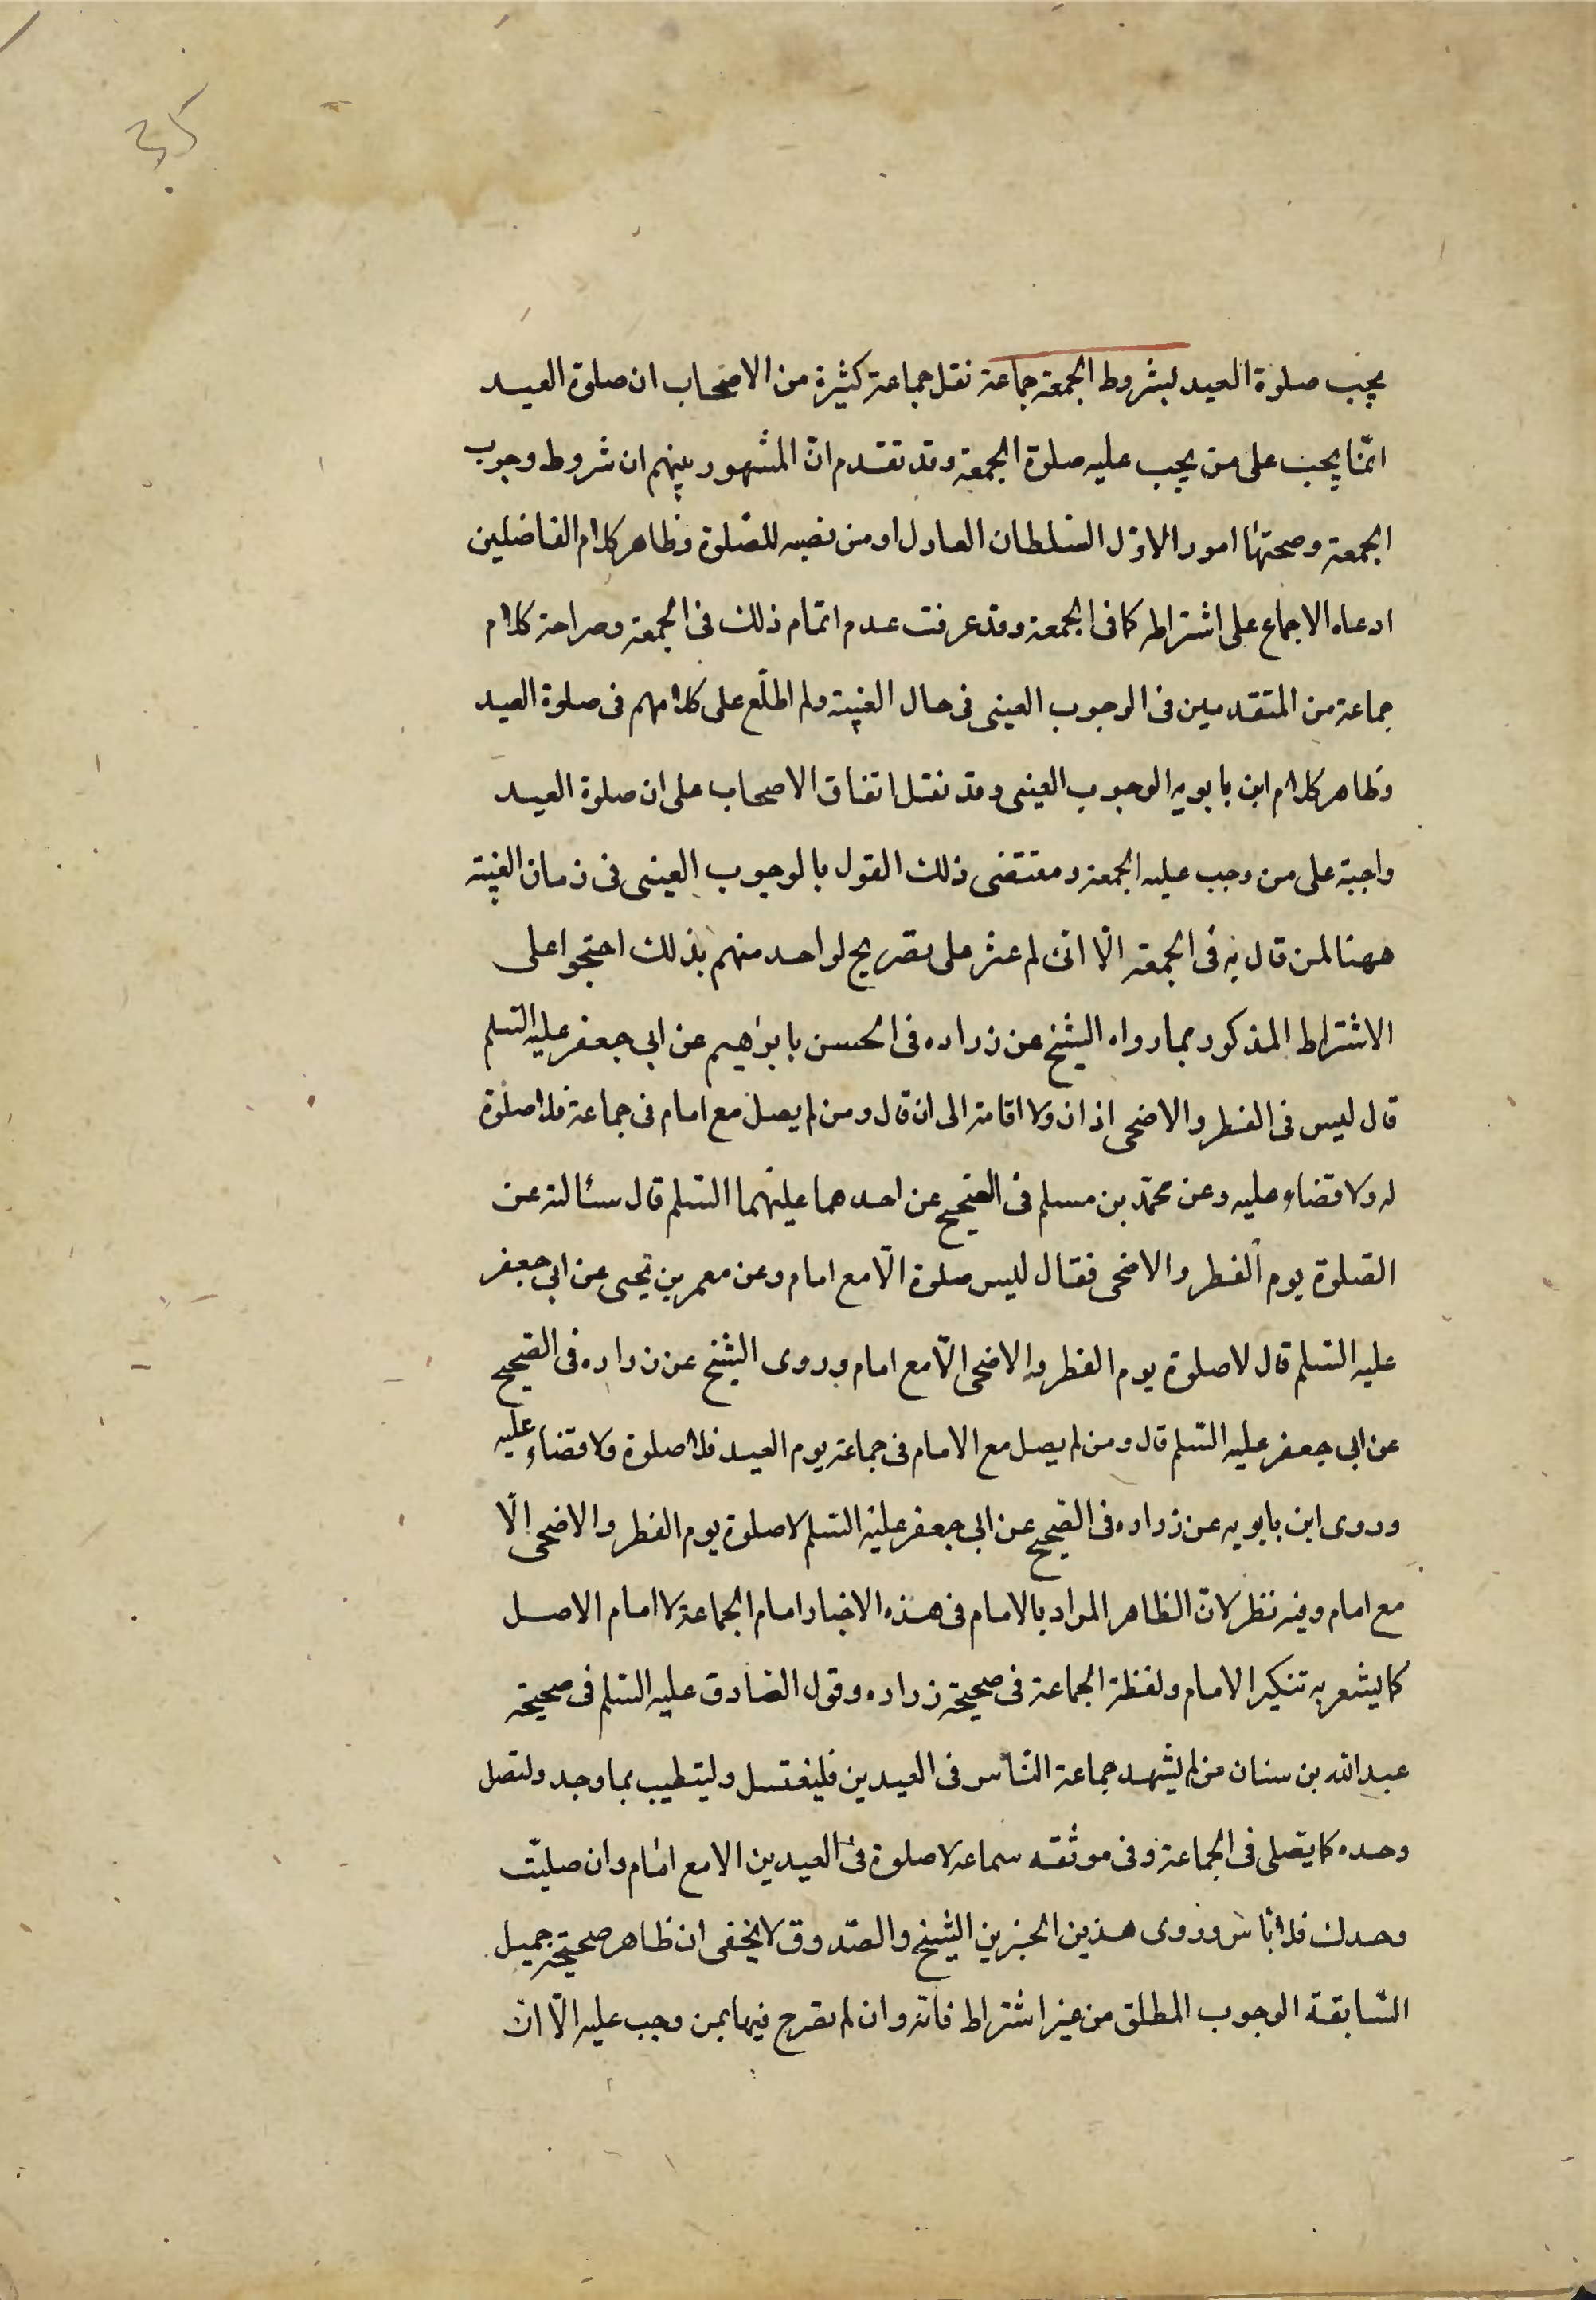 يجب صلوة العيد بشروط الجمعة جماعة نقل جماعة كثيرة من الاصحاب ان صلوة العيد
انما يجب على من يجب عليه صلوة الجمعة وقد تقدم انّ المشهور بينهم ان شروط وجوب
الجمعة وصحتها امور الاوّل السّلطان العادل او من نصبه للصّلوة وظاهر كلام الفاضلين
ادعاه الاجماع على اشتراطه كما فى الجمعة وقد عرفت عدم اتمام ذلك فى الجمعة وصراحة كلام
جماعة من المتقدمين فى الوجوب العينى فى حال الغيبة ولم اطلّع على كلامهم فى صلوة العيد
وظاهر كلام ابن بابويه الوجوب العينى وقد نقل اتفاق الاصحاب على ان صلوة العيد
واجبة على من وجب عليه الجمعة ومقتضى ذلك القول بالوجوب العينى فى زمان الغيبة
ههنا لمن قال به فى الجمعة الّا انى لم عثر على تصريح لواحد منهم بذلك احتجوا على
الاشتراط المذكور بما رواه الشيخ عن زراره فى الحسن بابراهيم عن ابى جعفر عليه السّلم
قال ليس فى الفطر والاضحى اذان ولا اقامة الى ان قال ومن لم يصل مع امام فى جماعة فلا صلوة
له ولا قضاء عليه وعن محمّد بن مسلم فى الصّحيح عن احدهما عليهما السّلم قال سئالته عن
الصّلوة يوم الفطر والاضحى فقال ليس صلوة الّا مع امام وعن معمر بن يحيى عن ابى جعفر
عليه السّلم قال لا صلوة يوم الفطر والاضحى الّا مع امام وروى الشيخ عن زراره فى الصّحيح
عن ابى جعفر عليه السّلم قال ومن لم يصل مع الامام فى جماعة يوم العيد فلا صلوة ولا قضاء عليه
وروى ابن بابويه عن زراره فى الصّحيح عن ابى جعفر عليه السّلم لا صلوة يوم الفطر والاضحى الّا
مع امام وفيه نظر لانّ الظاهر المراد بالامام فى هذه الاخبار امام الجماعة لا امام الاصل
كما يشعر به تنكير الامام ولفظة الجماعة فى صحيحة زراره وقول الصّادق عليه السّلم فى صحيحة
عبد الله بن سنان من لم يشهد جماعة النّاس فى العيدين فليغتسل وليتطيب بما وجد ولتصل
وحده كما يصّلى فى الجماعة وفى موثقه سماعه لا صلوة فى العيدين الا مع امام وان صليّت
وحدك فلا بأس وروى هذين الخبرين الشيخ والصّدوق لا يخفى ان ظاهر صحيحة جميل
السّابقة الوجوب المطلق من غير اشتراط فانه وان لم تصرح فيها بمن وجب عليه الّا ان